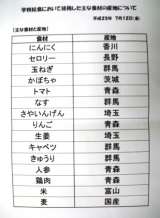 学校給食において使用した主な食材の産地について
平成23年 7月12日(金)
(主な食材の産地)
食材 産地
にんにく 香川
セロリー 長野
玉ねぎ 群馬
かぼちゃ 茨城
トマト 青森
なす 群馬
さやいんげん 埼玉
りんご 青森
生姜 埼玉
キャベツ 群馬
きゅうり 群馬
人参 青森
鶏肉 青森
米 富山
麦 国産